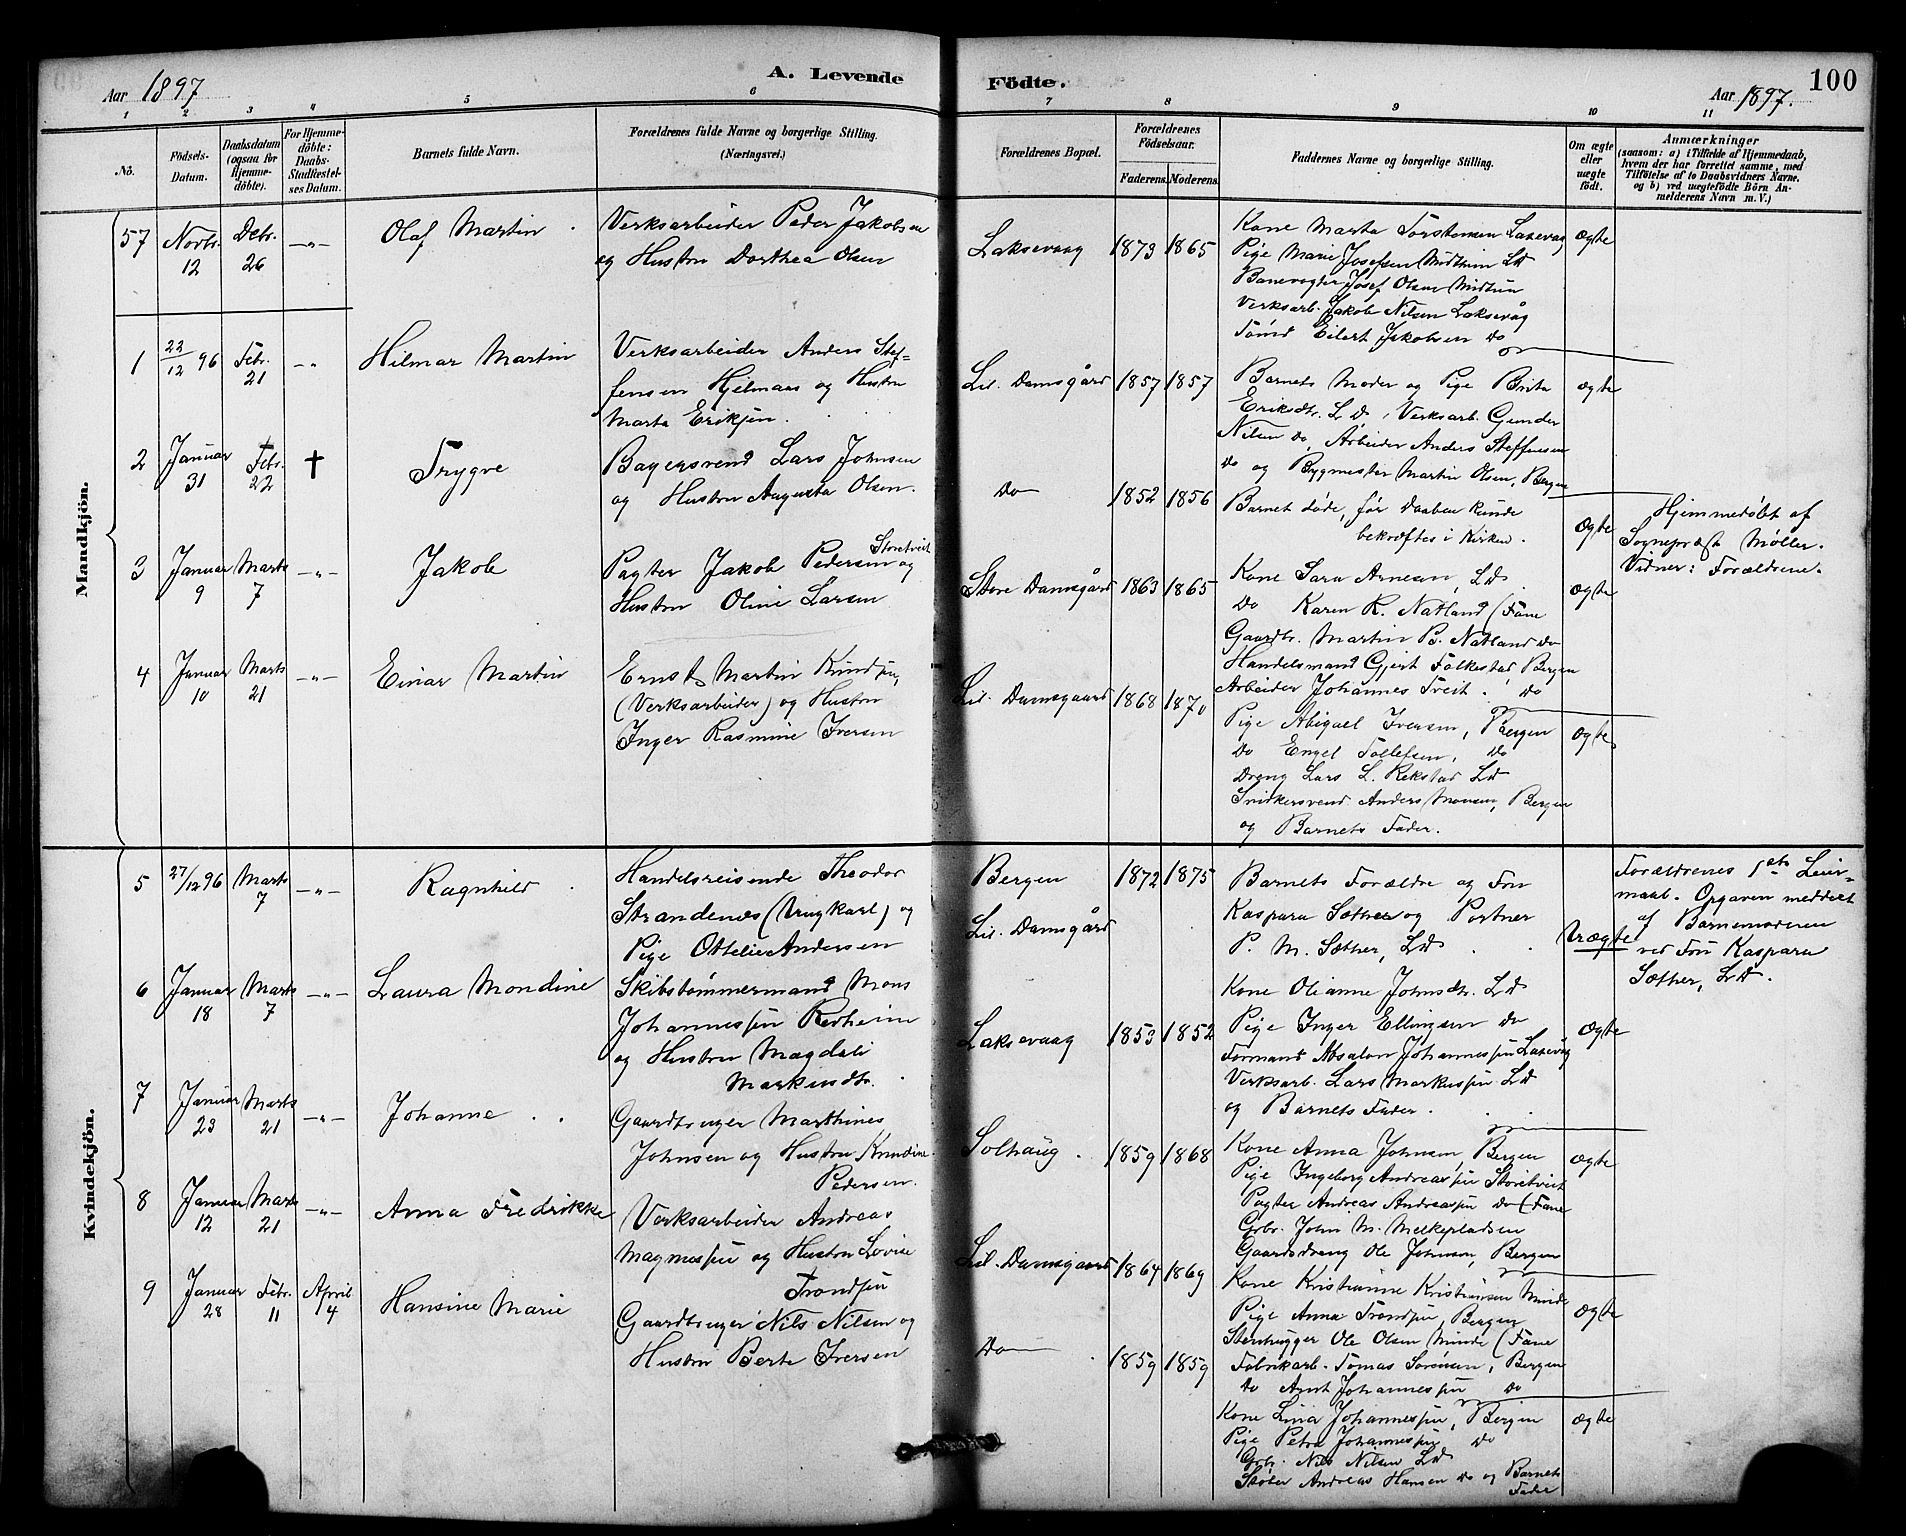 Aar 1897
A. Levende
Födte.
Aar 1897.
100
1 2 3 4 5 6 7 8 9 10 11
No.
Födsels-
Datum.
Daabsdatum
(ogsaa for
Hjemme-
döbte).
For Hjemme-
döbte:
Daabs-
Stadfæstel-
ses Datum.
Barnets fulde Navn.
Forældrenes fulde Navne og borgerlige Stilling.
(Næringsvei.)
Forældrenes Bopæl.
Forældrenes
Födselsaar.
Faderens. Moderens.
Faddernes Navne og borgerlige Stilling.
Om ægte
eller
uægte
födt.
Anmærkninger
(saasom: a) i Tilfælde af Hjemmedaab,
hvem der har forrettet samme, med
Tilföielse af to Daabsvidners Navne.
og b) ved uægtefödte Börn An-
melderens Navn m. V.)
Mandkjön.
57
Novbr.
12
Debr.
26
-"-
Olaf Martin
Verksarbeider Peder Jakobsen
og Hustru Dorthea Olsen
Laksevaag
1873 1865
Kone Marta Torstensen Laksevag
Pige Marie Josefsen Midthun LD
Banevogter Josef Olsen Midtun
Verksarb. Jakob Nilsen Laksevåg
Tømd Eilert Jakobsen Do
Ægte
1
22/12 96
Febr.
21
-"-
Hilmar Martin
Verksarbeider Anders Stef-
fensen Hjelmaas og Hustru
Marta Eriksen.
Lil. Damsgård
1857 1857
Barnets Moder og Pige Brita
Eriksdtr. LD, Verksarb. Gunder
Nilsen Do, Arbeider Anders Steffensen
Do og Bygmester Martin Olsen, Bergen
Ægte
2
Januar
31
Febr.
22
†
Trygve
Bagersvend Lars Johnsen
og Hustru Augusta Olsen.
Do
1852 1856
Barnet døde, før Daaben kunde
bekræftes i Kirken.
Ægte
Hjemmedøbt af
Sogneprest Møller.
Vidner: Forældrene.
3
Januar
9
Marts
7
-"-
Jakob
Pagter Jakob Pedersen Storetveit og
Hustru Oline Larsen
Store Damsgård
1863 1865
Kone Sara Arnesen, LD
Do Karen K. Natland (Fane
Gaardbr. Martin B. Natland Do
Handelsmand Gjert Folkestad, Bergen
Arbeider Johannes Tveit. Do
Ægte
4
Januar
10
Marts
21
-"-
Einar Martin
Ernst Martin Knudsen,
(Verksarbeider) og Hustru
Inger Rasmine Iversen
Lil. Damsgaard
1868 1870
Pige Abigael Iversen, Bergen
Do Engel Tollefsen, Do
Dreng Lars L. Rekstad LD
Snidkersvend Anders Monsen, Bergen
og Barnets Fader.
Ægte
Kvindekjön.
5
27/12 96
Marts
7
-"-
Ragnhild
Handelsreisende Theodor
Strandenæs (Ungkarl) og
Pige Ottelie Andersen
Bergen
Lil. Damsgård
1872 1875
Barnets Forældre og Fru
Kaspara Sæther og Portner
P. M. Sæther, LD
Uægte
Forældrenes 1ste Leier-
maal. Opgaven meddelt
af Barnemoderen
ved Fru Kaspara
Sæther, LD.
6
Januar
18
Marts
7
-"-
Laura Mondine
Skibstømmermand Mons
Johannessen Rødheim
og Hustru Magdeli
Markusdtr.
Laksevaag
1853 1852
Kone Olianne Johnsdtr. LD
Pige Inger Ellingsen Do
Formand Absalon Johannessen Laksevåg
Verksarb. Lars Markussen LD
og Barnets Fader.
Ægte
7
Januar
23
Marts
21
-"-
Johanna
Gaardbruger Marthines
Johnsen og Hustru Knudine
Pedersen.
Solhaug.
1859 1868
Kone Anna Johnsen, Bergen
Pige Ingeborg Andreassen Storetveit
Pagter Andreas Andreassen Do (Fane
Grbr. John M. Melkepladsen
Gaardsdreng Ole Johnsen, Bergen
Ægte
8
Januar
12
Marts
21
-"-
Anna Fredrikke
Verksarbeider Andreas
Magnessen og Hustru Lovise
Trondsen
Lil. Damsgaard
1864 1869
Kone Kristianne Kristiansen Minde
Pige Anna Trondsen, Bergen
Stenhugger Ole Olsen Minde (Fane
Fabrikarb. Tomas Sørensen, Bergen
Do Arnt Johannessen Do
Ægte
9
Januar
28
Febr.
11
April
4
Hansine Marie
Gaardbruger Nils Nilsen og
Hustru Berte Iversen
Do
1859 1859
Kone Lina Johannessen, Bergen
Pige Petra Johannessen Do
Grbr. Nils Nilsen LD
Støber Andreas Hansen Do og Barnets
Fader
Ægte